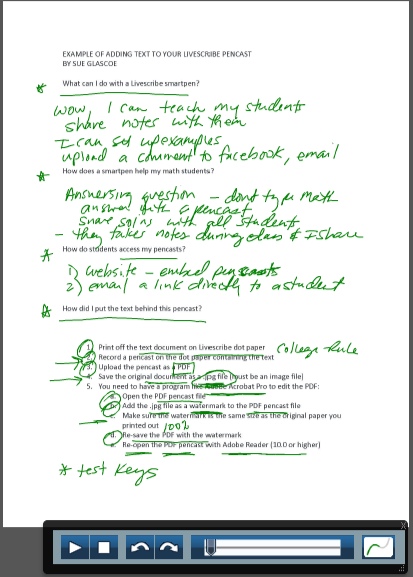 EXAMPLE OF ADDING TEXT TO YOUR LIVESCRIBE PENCAST
BY SUE GLASCOE
* What can I do with a Livescribe smartpen?
Wow, I can teach my students
share notes with them
I can set up examples
upload a comment to facebook, email
* How does a smartpen help my math students?
Answersing question – don't type math
answer with a pencast
share solns with all students
– they take notes during class & I share
* How do students access my pencasts?
1) website – embed pencasts
2) email a link directly to a student
* How did I put the text behind this pencast?
1. Print off the text document on Livescribe dot paper College Rule
2. Record a pencast on the dot paper containing the text
3. Upload the pencast as a PDF
4. Save the original document as a .jpg file (must be an image file)
5. You need to have a program like Adobe Acrobat Pro to edit the PDF:
a. Open the PDF pencast file
b. Add the .jpg file as a watermark to the PDF pencast file
c. Make sure the watermark is the same size as the original paper you
printed out 100%
d. Re-save the PDF with the watermark
e. Re-open the PDF pencast with Adobe Reader (10.0 or higher)
* test Keys